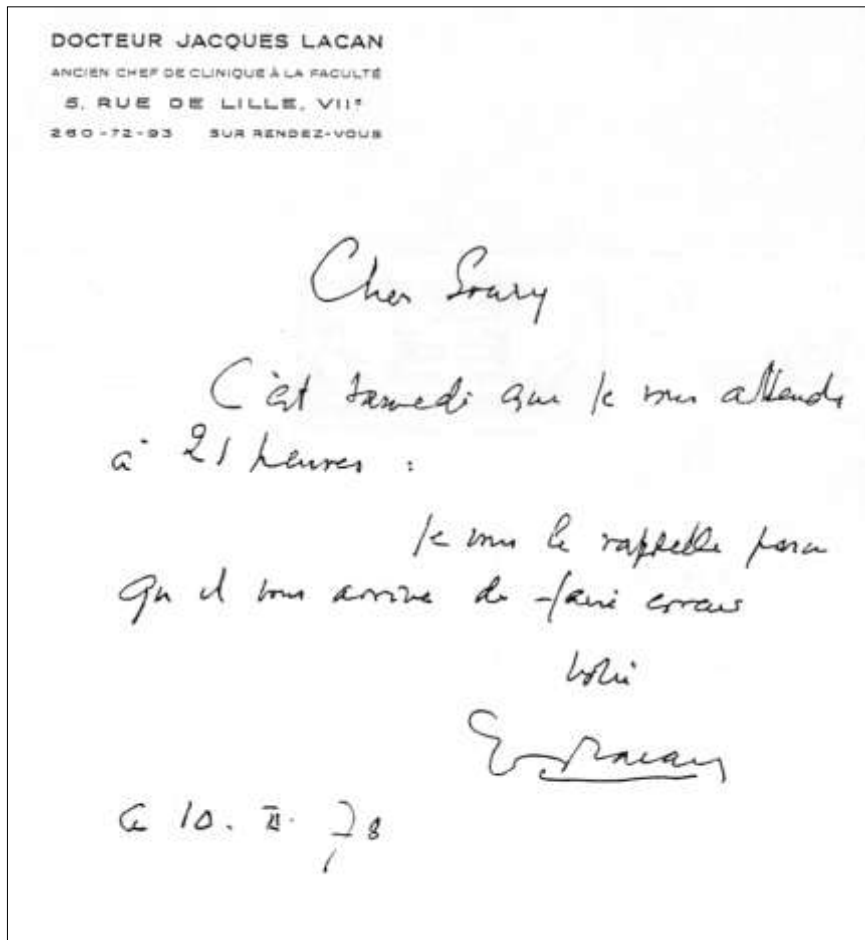 DOCTEUR JACQUES LACAN
ANCIEN CHEF DE CLINIQUE À LA FACULTÉ
5, RUE DE LILLE, VIIe
260-72-93 SUR RENDEZ-VOUS
Cher Soury
C'est samedi que je vous attends
à 21 heures :
je vous le rappelle parce
qu'il vous arrive de faire erreur
Votre
J. Lacan
Ce 10. II. 78